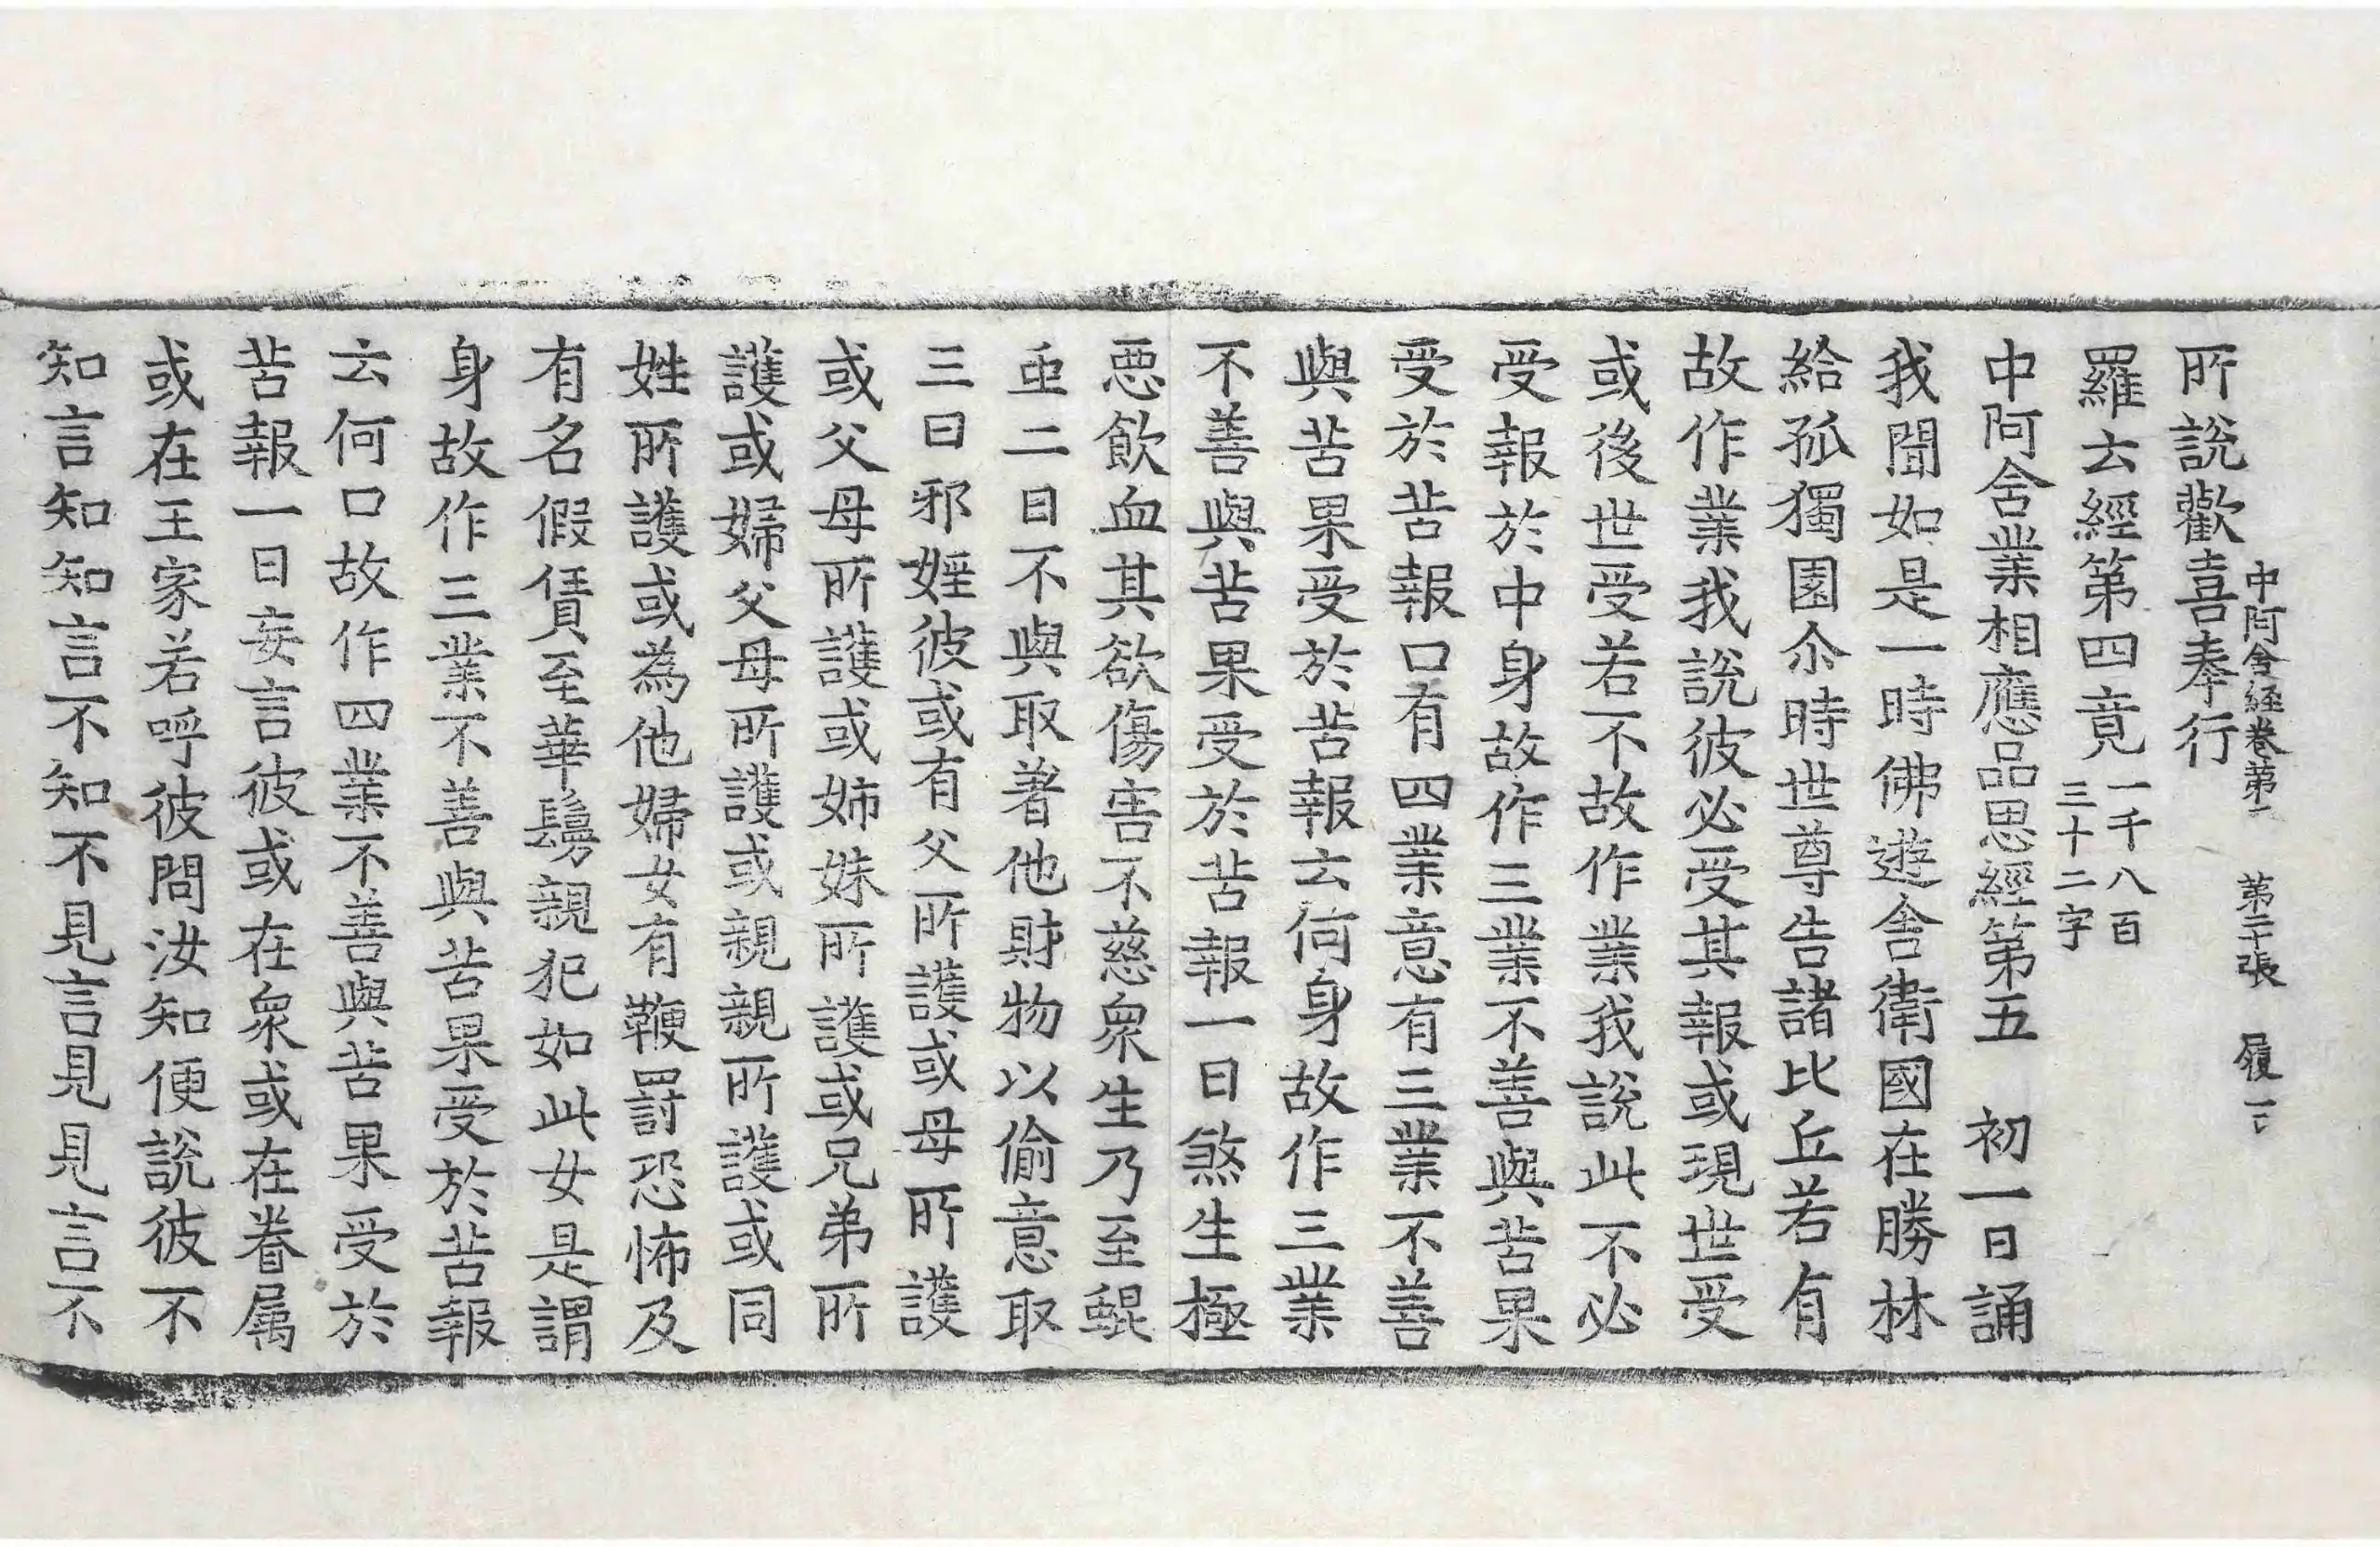 所說歡喜奉行
中阿含經卷第三 第二十張 履
羅云經第四竟 一千八百三十二字
中阿含業相應品思經第五 初一日誦
我聞如是一時佛遊舍衛國在勝林
給孤獨園尒時世尊告諸比丘若有
故作業我說彼必受其報或現世受
或後世受若不故作業我說此不必
受報於中身故作三業不善與苦果
受於苦報口有四業意有三業不善
與苦果受於苦報云何身故作三業
不善與苦果受於苦報一曰煞生極
惡飲血其欲傷害不慈衆生乃至蜫
䖝二曰不與取著他財物以偷意取
三曰邪婬彼或有父所護或母所護
或父母所護或姉妹所護或兄弟所
護或婦父母所護或親親所護或同
姓所護或為他婦女有鞭罰恐怖及
有名假賃至華鬘親犯如此女是謂
身故作三業不善與苦果受於苦報
云何口故作四業不善與苦果受於
苦報一曰妄言彼或在衆或在眷属
或在王家若呼彼問汝知便說彼不
知言知知言不知不見言見見言不